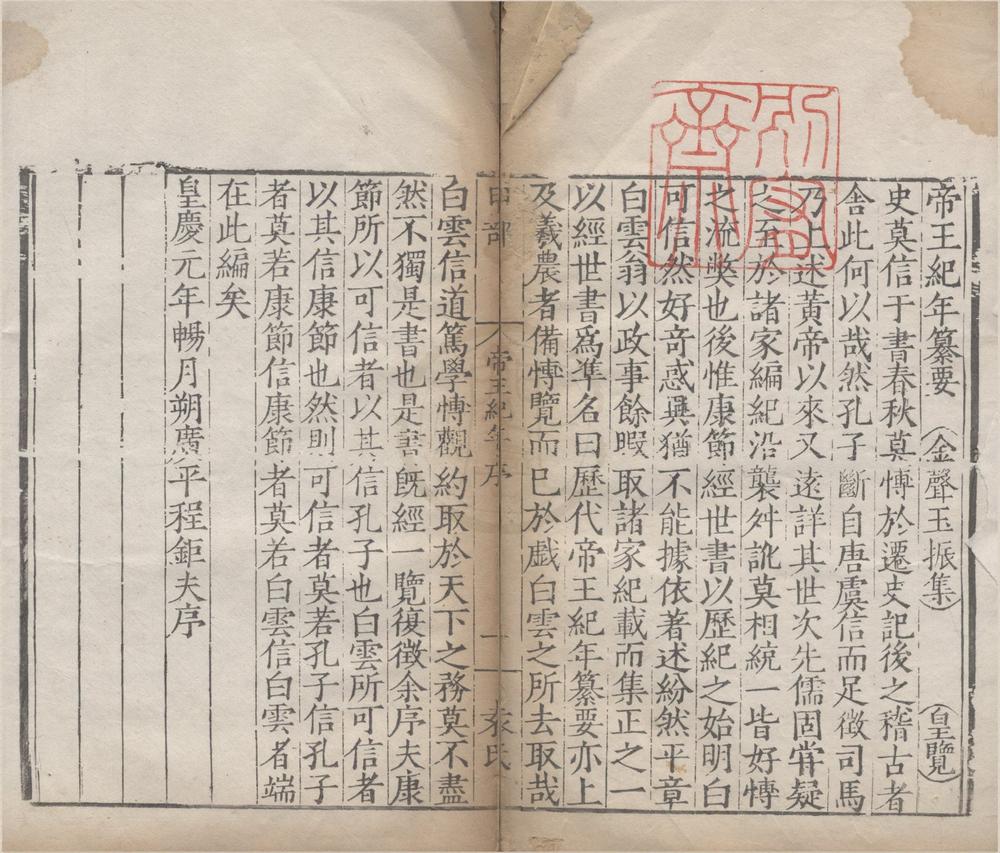 帝王紀年纂要 (金聲玉振集) (皇覽)
史莫信于書春秋莫慱於遷史記後之稽古者
舍此何以哉然孔子斷自唐虞信而足徵司馬
乃上述黃帝以來又遠詳其世次先儒固甞疑
之至於諸家編紀沿襲舛訛莫相統一皆好慱
之流獘也後惟康節經世書以歷紀之始明白
可信然好竒惑異猶不能據依著述紛然平章
白雲翁以政事餘暇取諸家紀載而集正之一
以經世書爲凖名曰歷代帝王紀年纂要亦上
及羲農者備慱覽而已於戯白雲之所去取哉
甲部 帝王紀年序 一 袁氏
白雲信道篤學慱觀約取於天下之務莫不盡
然不獨是書也是書旣經一覽復徵余序夫康
節所以可信者以其信孔子也白雲所可信者
以其信康節也然則可信者莫若孔子信孔子
者莫若康節信康節者莫若白雲信白雲者端
在此編矣
皇慶元年暢月朔廣平程鉅夫序